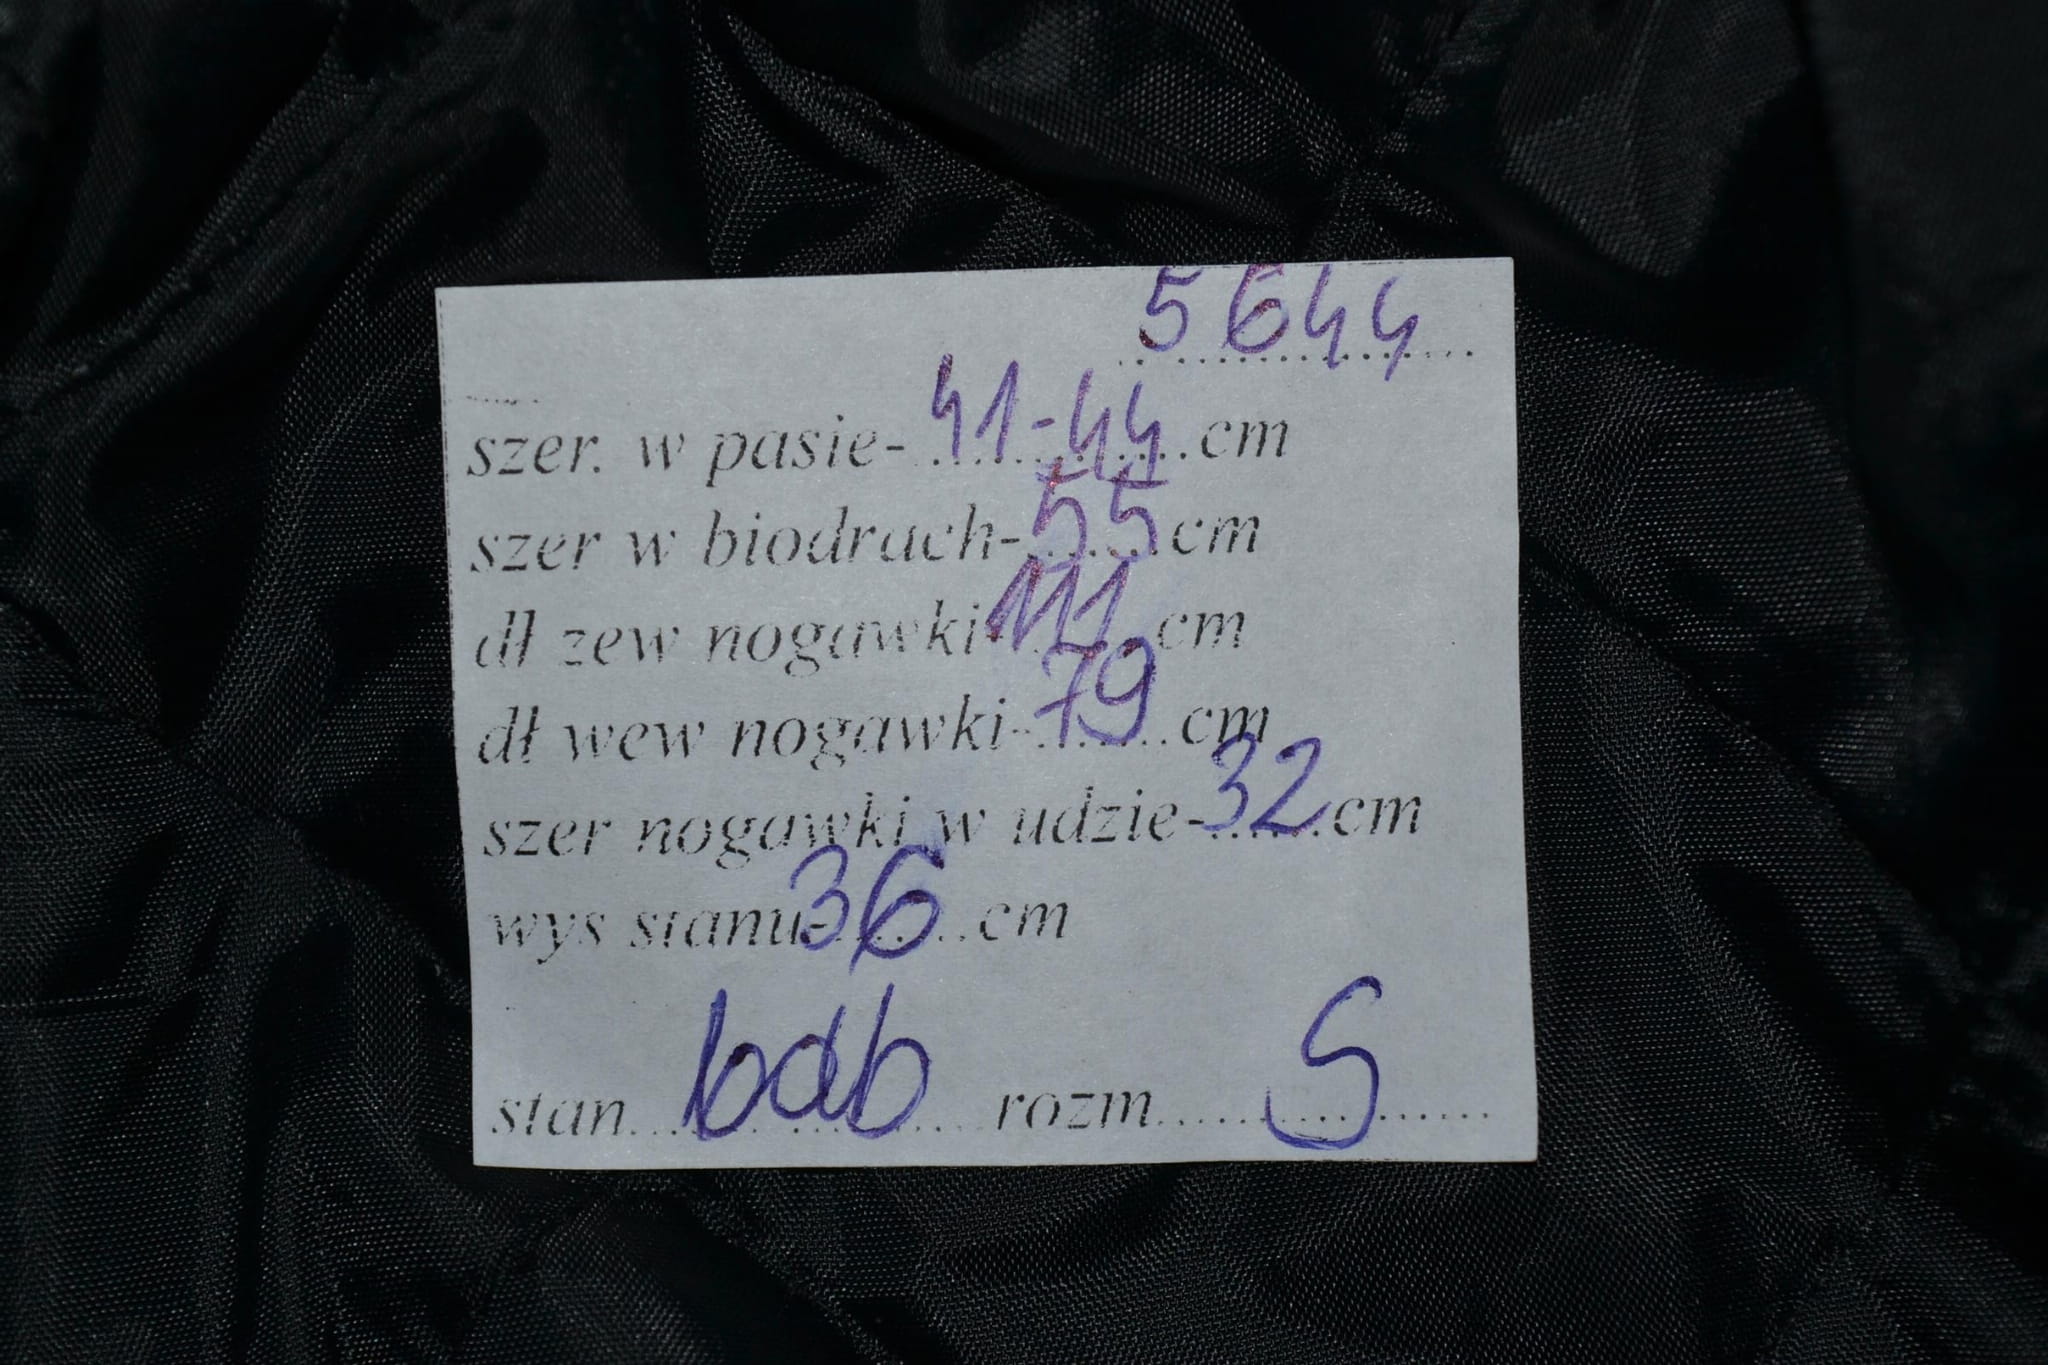 5644
szer. w pasie-41-44 cm
szer w biodrach-55 cm
dł zew nogawki-111 cm
dł wew nogawki-79 cm
szer nogawki w udzie-32 cm
wys stanu-36 cm
stan bdb rozm S